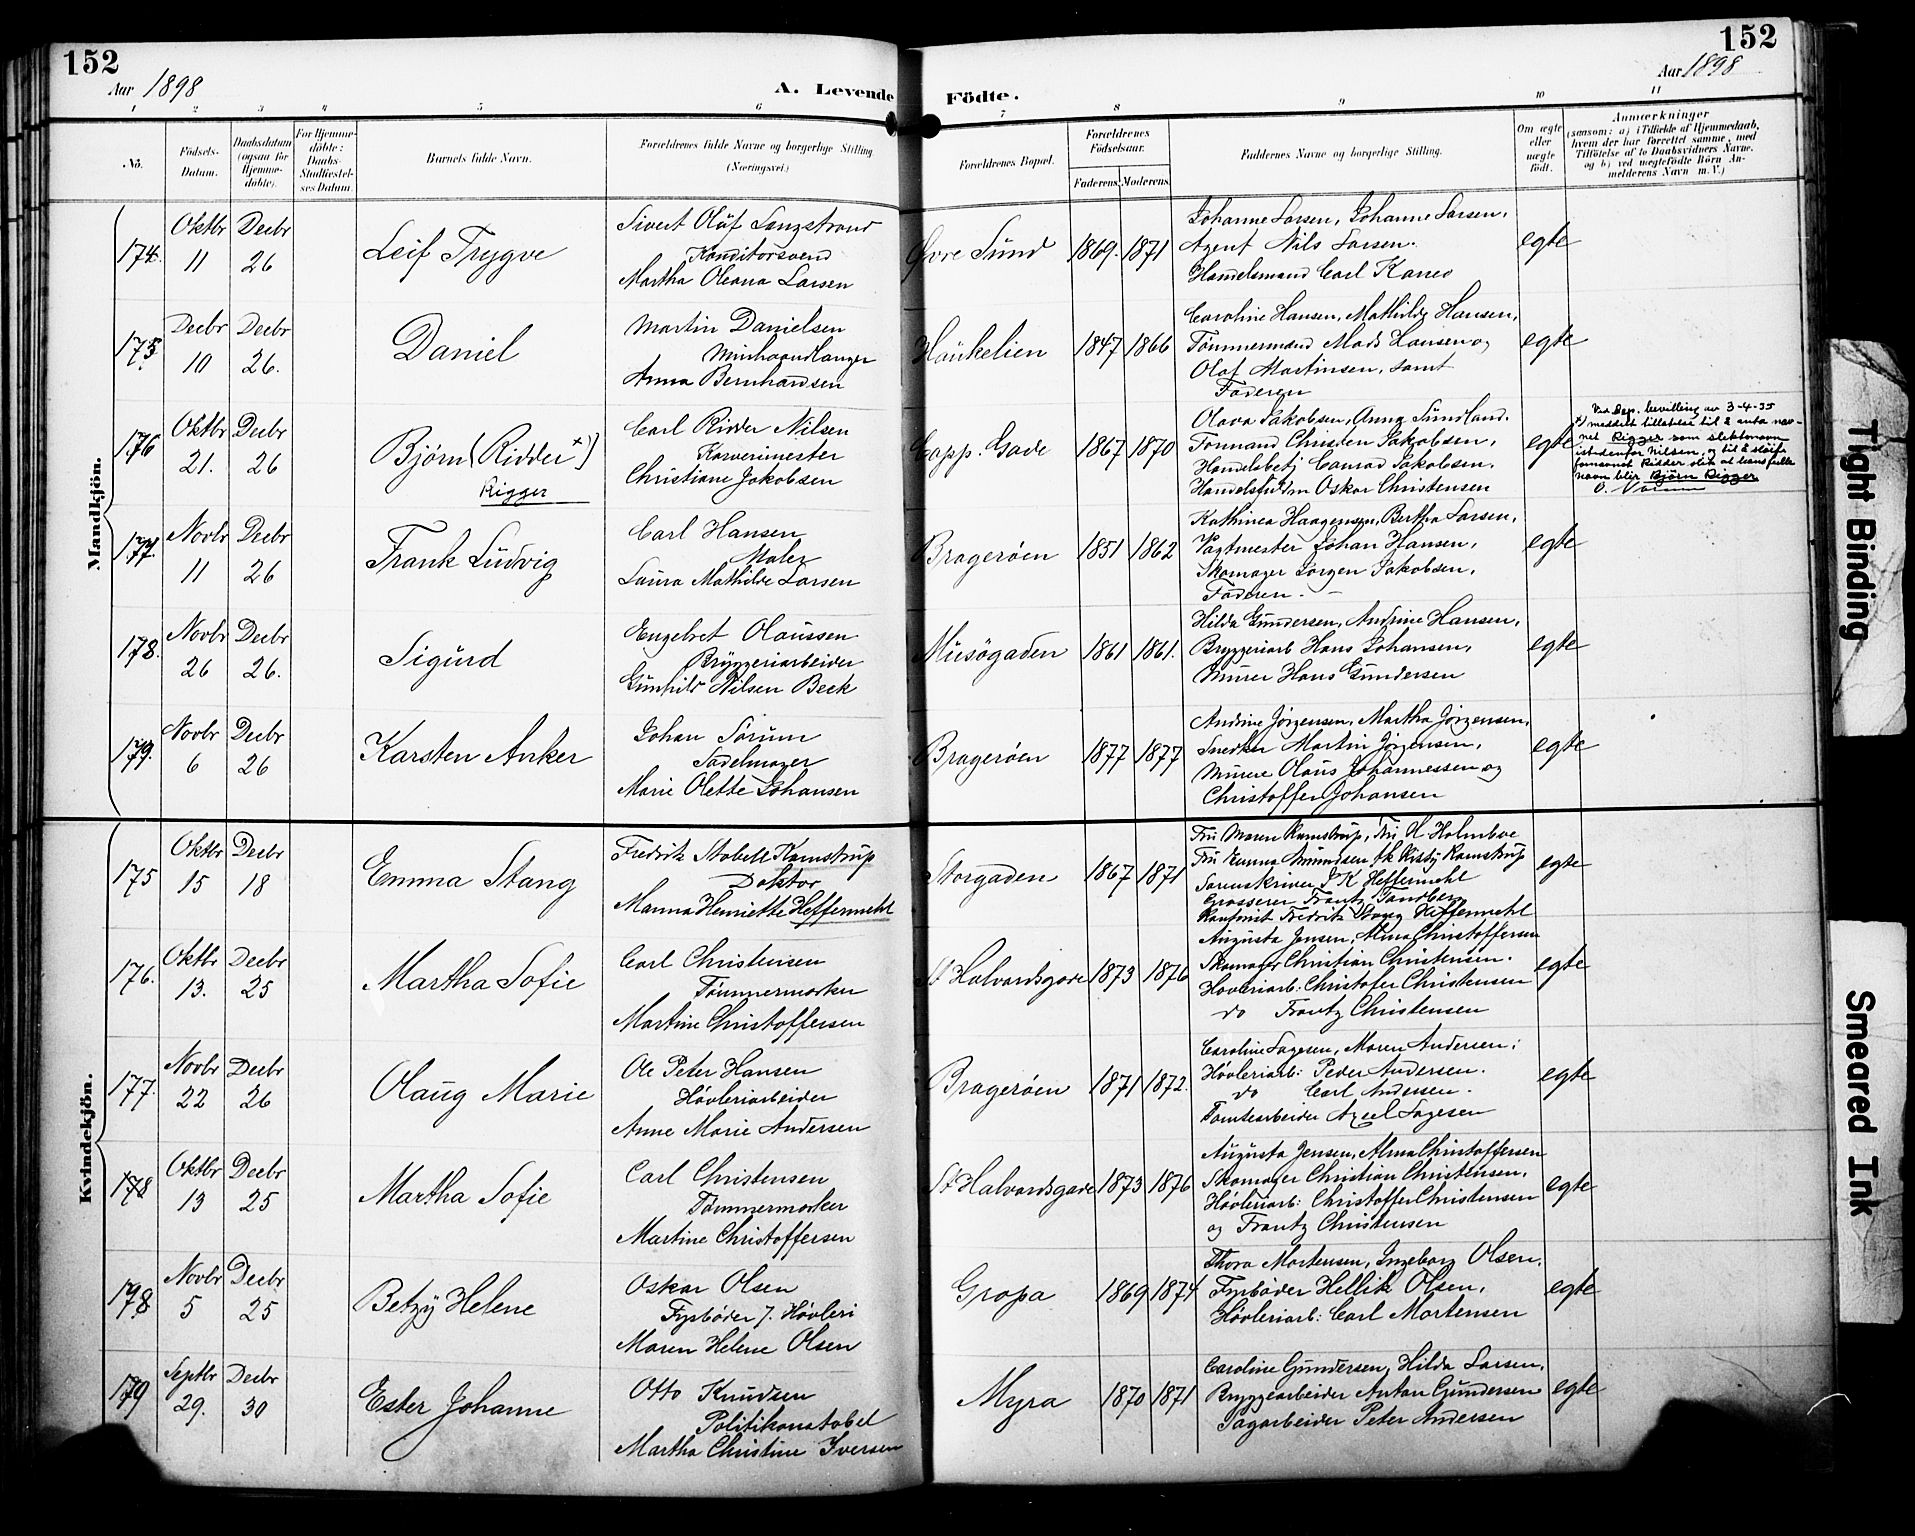 152
152
Aar 1898
Aar 1898
A. Levende Födte.
1 2 3 4 5 6 7 8 9 10 11
No.
Födsels-
Datum.
Daabsdatum
(ogsaa for
Hjemme-
döbte).
For Hjemme-
döbte:
Daabs-
Stadfæstel-
ses Datum.
Barnets fulde Navn.
Forældrenes fulde Navne og borgerlige Stilling
(Næringsvei.)
Forældrenes Bopæl.
Forældrenes
Födselsaar.
Faderens. Moderens.
Faddernes Navne og borgerlige Stilling.
Om ægte
eller
uægte
födt.
Anmærkninger
(saasom: a) i Tilfælde af Hjemmedaab,
hvem der har forrettet samme, med
Tilföielse af to Daabsvidners Navne.
og b) ved uegtefödte Börn An-
melderens Navn m. V.)
Mandkjön.
174. Oktbr 11 Decbr 26 Leif Trygve
Sivert Olaf Langstrand
Konditorsvend
Martha Oleana Larsen
Øvre Sund 1869. 1871
Johanne Larsen, Johanne Larsen,
Agent Nils Larsen.
Handelsmand Carl
egte
175. Decbr 10 Decbr 26. Daniel
Martin Danielsen
Anna Bernhardsen
Haukelien 1847 1866
Caroline Hansen, Mathilde Hansen,
Tømmermand Mads Hansen og
Olaf Martinsen, samt
Faderen
egte
176 Oktbr 21. Decbr 26 Bjørn (Ridder x)
Rigger
Carl Ridder Nilsen
Garverimester
Christiane Jakobsen
Capp. Gade 1867 1870
Olava Jakobsen, Anna Sundland.
Formand Christen Jakobsen,
Handelsbetj Conrad Jakobsen.
Handelsfuldm Oskar Christensen
egte
Ved Dep. bevilling av 3-4-35
x) meddelt tillatelse til å anta nav-
net Rigger som slektsnavn
istedenfor Nilsen, og til å sløife
fornavnet Ridder slik at hans fulle
navn blir Bjørn Rigger
177. Novbr 11 Decbr 26 Frank Ludvig
Carl Hansen
Maler
Laura Mathilde Larsen
Bragerøen 1851 1862
Kathinca Haagensen, Bertha Larsen,
Vagtmester Johan Hansen,
Skomager Jørgen Jakobsen,
Faderen.
egte
178. Novbr 26 Decbr 26. Sigurd
Engebret Olaussen
Bryggeriarbeider
Gunhild Nilsen Beck
Musøgaden 1861 1861.
Hilda Gundersen, Andrine Hansen,
Bryggeriarb Hans Johansen,
Murer Hans Gundersen
egte
179. Novbr 6 Decbr 26 Karsten Anker
Johan Sørum
Sadelmager
Marie Olette Johansen
Bragerøen 1877 1877
Andrine Jørgensen, Martha Jørgensen,
Snedker Martin Jørgensen,
Murere Olaus Johannessen og
Christoffer Johansen
egte
Kvindekjön.
175 Oktbr 15 Decbr 18 Emma Stang
Fredrik Stabell Kamstrup
Doktor
Manna Henriette Heffermehl
Storgaden 1867 1871
Fru Maren Kamstrup, Fru H Holmboe
Fru Emma Amundsen frk Kisty Kamstrup
Sorenskriver J K Heffermehl
Grosserer Frantz Tandberg
Kaufmist Fredrik Stang Heffermehl
egte
176. Oktbr 13. Decbr 25 Martha Sofie
Carl Christensen
Tømmermerker
Martine Christoffersen
St Halvardsgade 1873 1876
Augusta Jensen, Alma Christoffersen
Skomager Christian Christensen.
Høvleriarb: Christofer Christensen
do Frantz Christensen
egte
177. Novbr 22 Decbr 26 Olaug Marie
Ole Peter Hansen
Høvleriarbeider
Anne Marie Andersen
Bragerøen 1871 1872.
Caroline Sagesen, Maren Andersen;
Høvleriarb: Peder Andersen.
do Carl Andersen.
Tomtearbeider Axel Sagesen
egte
178 Oktbr 13 Decbr 25 Martha Sofie
Carl Christensen
Tømmermerker
Martine Christoffersen
St Halvardsgade 1873 1876
Augusta Jensen, Alma Christoffersen
Skomager Christian Christensen,
Høvleriarb: Christoffer Christensen
og Frantz Christensen
egte
178 Novbr 5 Decbr 25 Betzy Helene
Oskar Olsen
Fyrbøder v. Høvleri
Maren Helene Olsen
Gropa 1869 1874
Thora Mortensen, Ingeborg Olsen,
Fyrbøder Hellik Olsen,
Høvleriarb: Carl Mortensen
egte
179 Septbr 29. Decbr 30 Ester Johanne
Otto Knudsen
Politikonstabel
Martha Christine Iversen
Myra 1870 1871
Caroline Gundersen, Hilda Larsen,
Bryggearbeider Anton Gundersen
Sagarbeider Peter Andersen
egte
Tight Binding
Smeared Ink